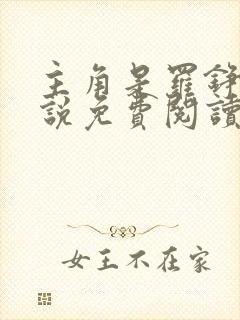 主角是羅錚
說免費閱讀
女王不在家